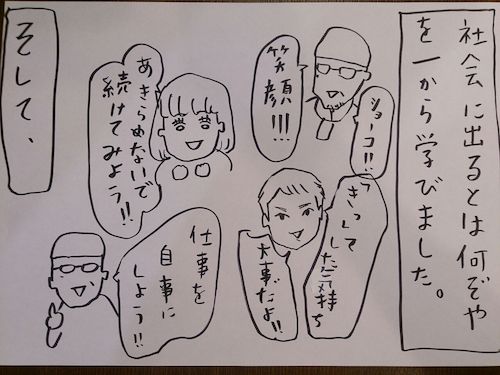 社会に出るとは何ぞや
を一から学びました。
ショーコ!!
笑顔!!!
気持ち
大事だよ!!
あきらめないで
続けてみよう!!
仕事を
自事に
しよう!!
そして、